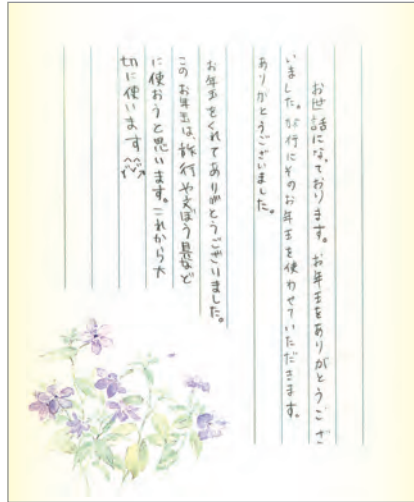 お世話になっております。お年玉をありがとうござ
いました。旅行にそのお年玉を使わせていただきます。
ありがとうございました。
お年玉をくれてありがとうございました。
このお年玉は、旅行や文ぼう具など
に使おうと思います。これから大
切に使います